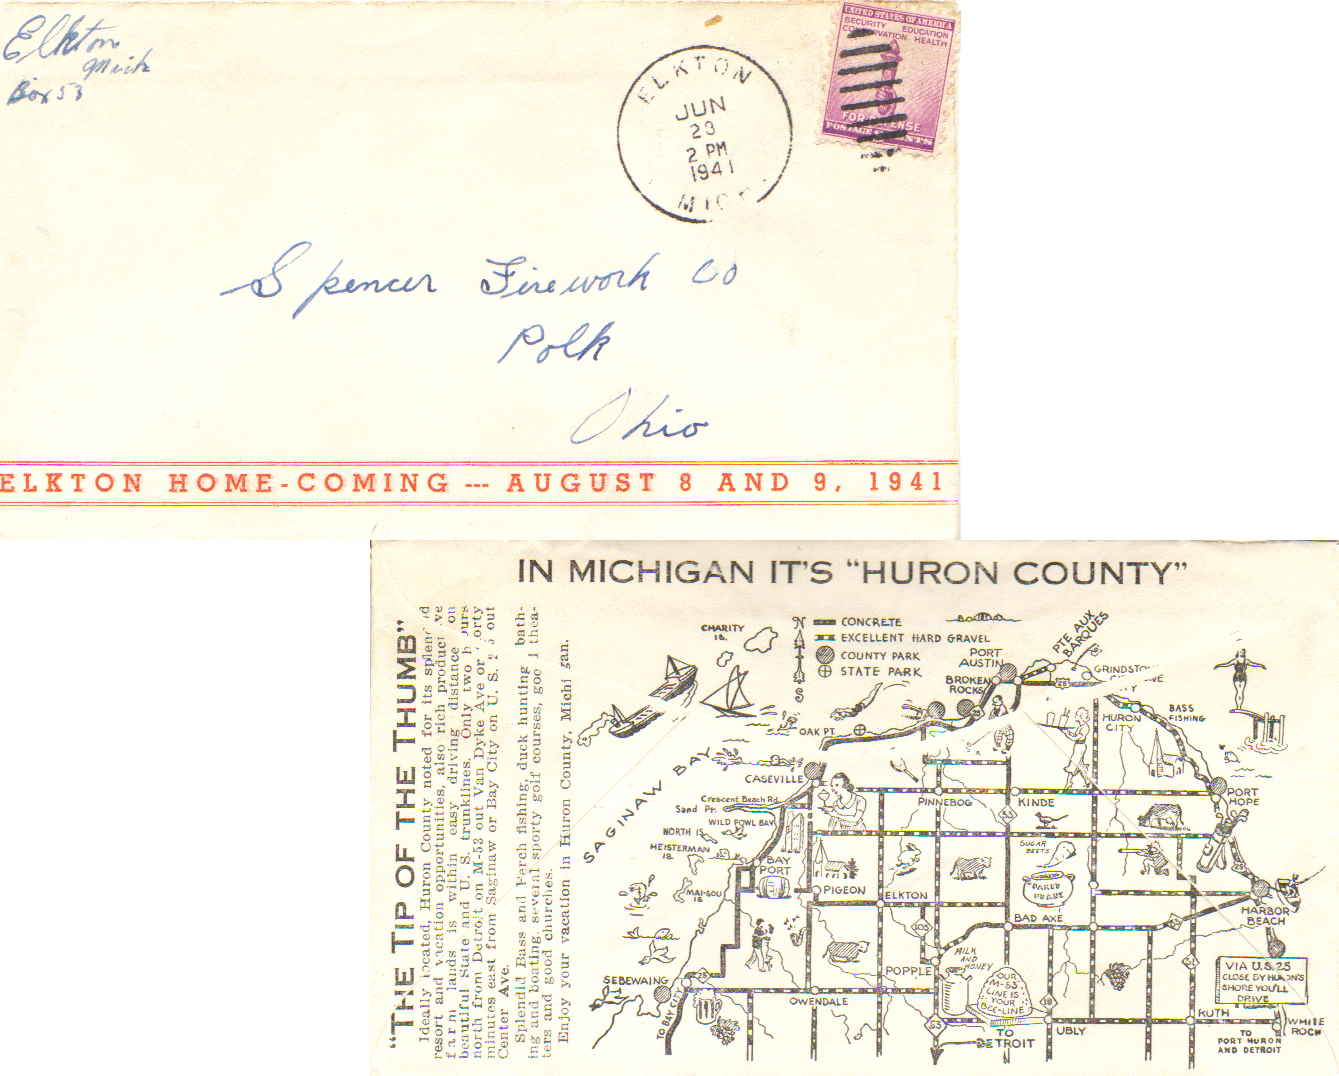 Elkton
Mich
Box 53
ELKTON
JUN
23
2 PM
1941
MICH
UNITED STATES OF AMERICA
SECURITY EDUCATION
CONSERVATION HEALTH
FOR DEFENSE
POSTAGE CENTS
Spencer Firework Co
Polk
Ohio
ELKTON HOME-COMING --- AUGUST 8 AND 9, 1941
IN MICHIGAN IT'S "HURON COUNTY"
"THE TIP OF THE THUMB"
Ideally located, Huron County noted for its splendid
resort and vacation opportunities, also rich productive
farm lands is within easy driving distance on
beautiful State and U. S. trunklines. Only two hours
north from Detroit on M-53 out Van Dyke Ave or forty
minutes east from Saginaw or Bay City on U. S. 25 out
Center Ave.
Splendid Bass and Perch fishing, duck hunting bath-
ing and boating, several sporty golf courses, good thea-
ters and good churches.
Enjoy your vacation in Huron County, Michigan.
N
S
CONCRETE
EXCELLENT HARD GRAVEL
COUNTY PARK
STATE PARK
CHARITY
IS.
PTE AUX
BARQUES
PORT
AUSTIN
BROKEN
ROCKS
GRINDSTONE
OAK PT.
HURON
CITY
BASS
FISHING
SAGINAW BAY
CASEVILLE
Crescent Beach Rd.
Sand Pt.
WILD FOWL BAY
NORTH IS
HEISTERMAN
IS.
MAI-SOU
IS
BAY
PORT
PINNEBOG
KINDE
PORT
HOPE
53
SUGAR
BEETS
BAKED
PIGEON
ELKTON
BAD AXE
HARBOR
BEACH
25
MILK
AND
HONEY
POPPLE
OUR
M-53
LINE IS
YOUR
BEE-LINE
SEBEWAING
25
OWENDALE
TO BAY CITY
VIA U.S. 25
CLOSE BY HURON'S
SHORE YOU'LL
DRIVE
RUTH
WHITE
ROCK
53
19
UBLY
TO
DETROIT
TO
PORT HURON
AND DETROIT